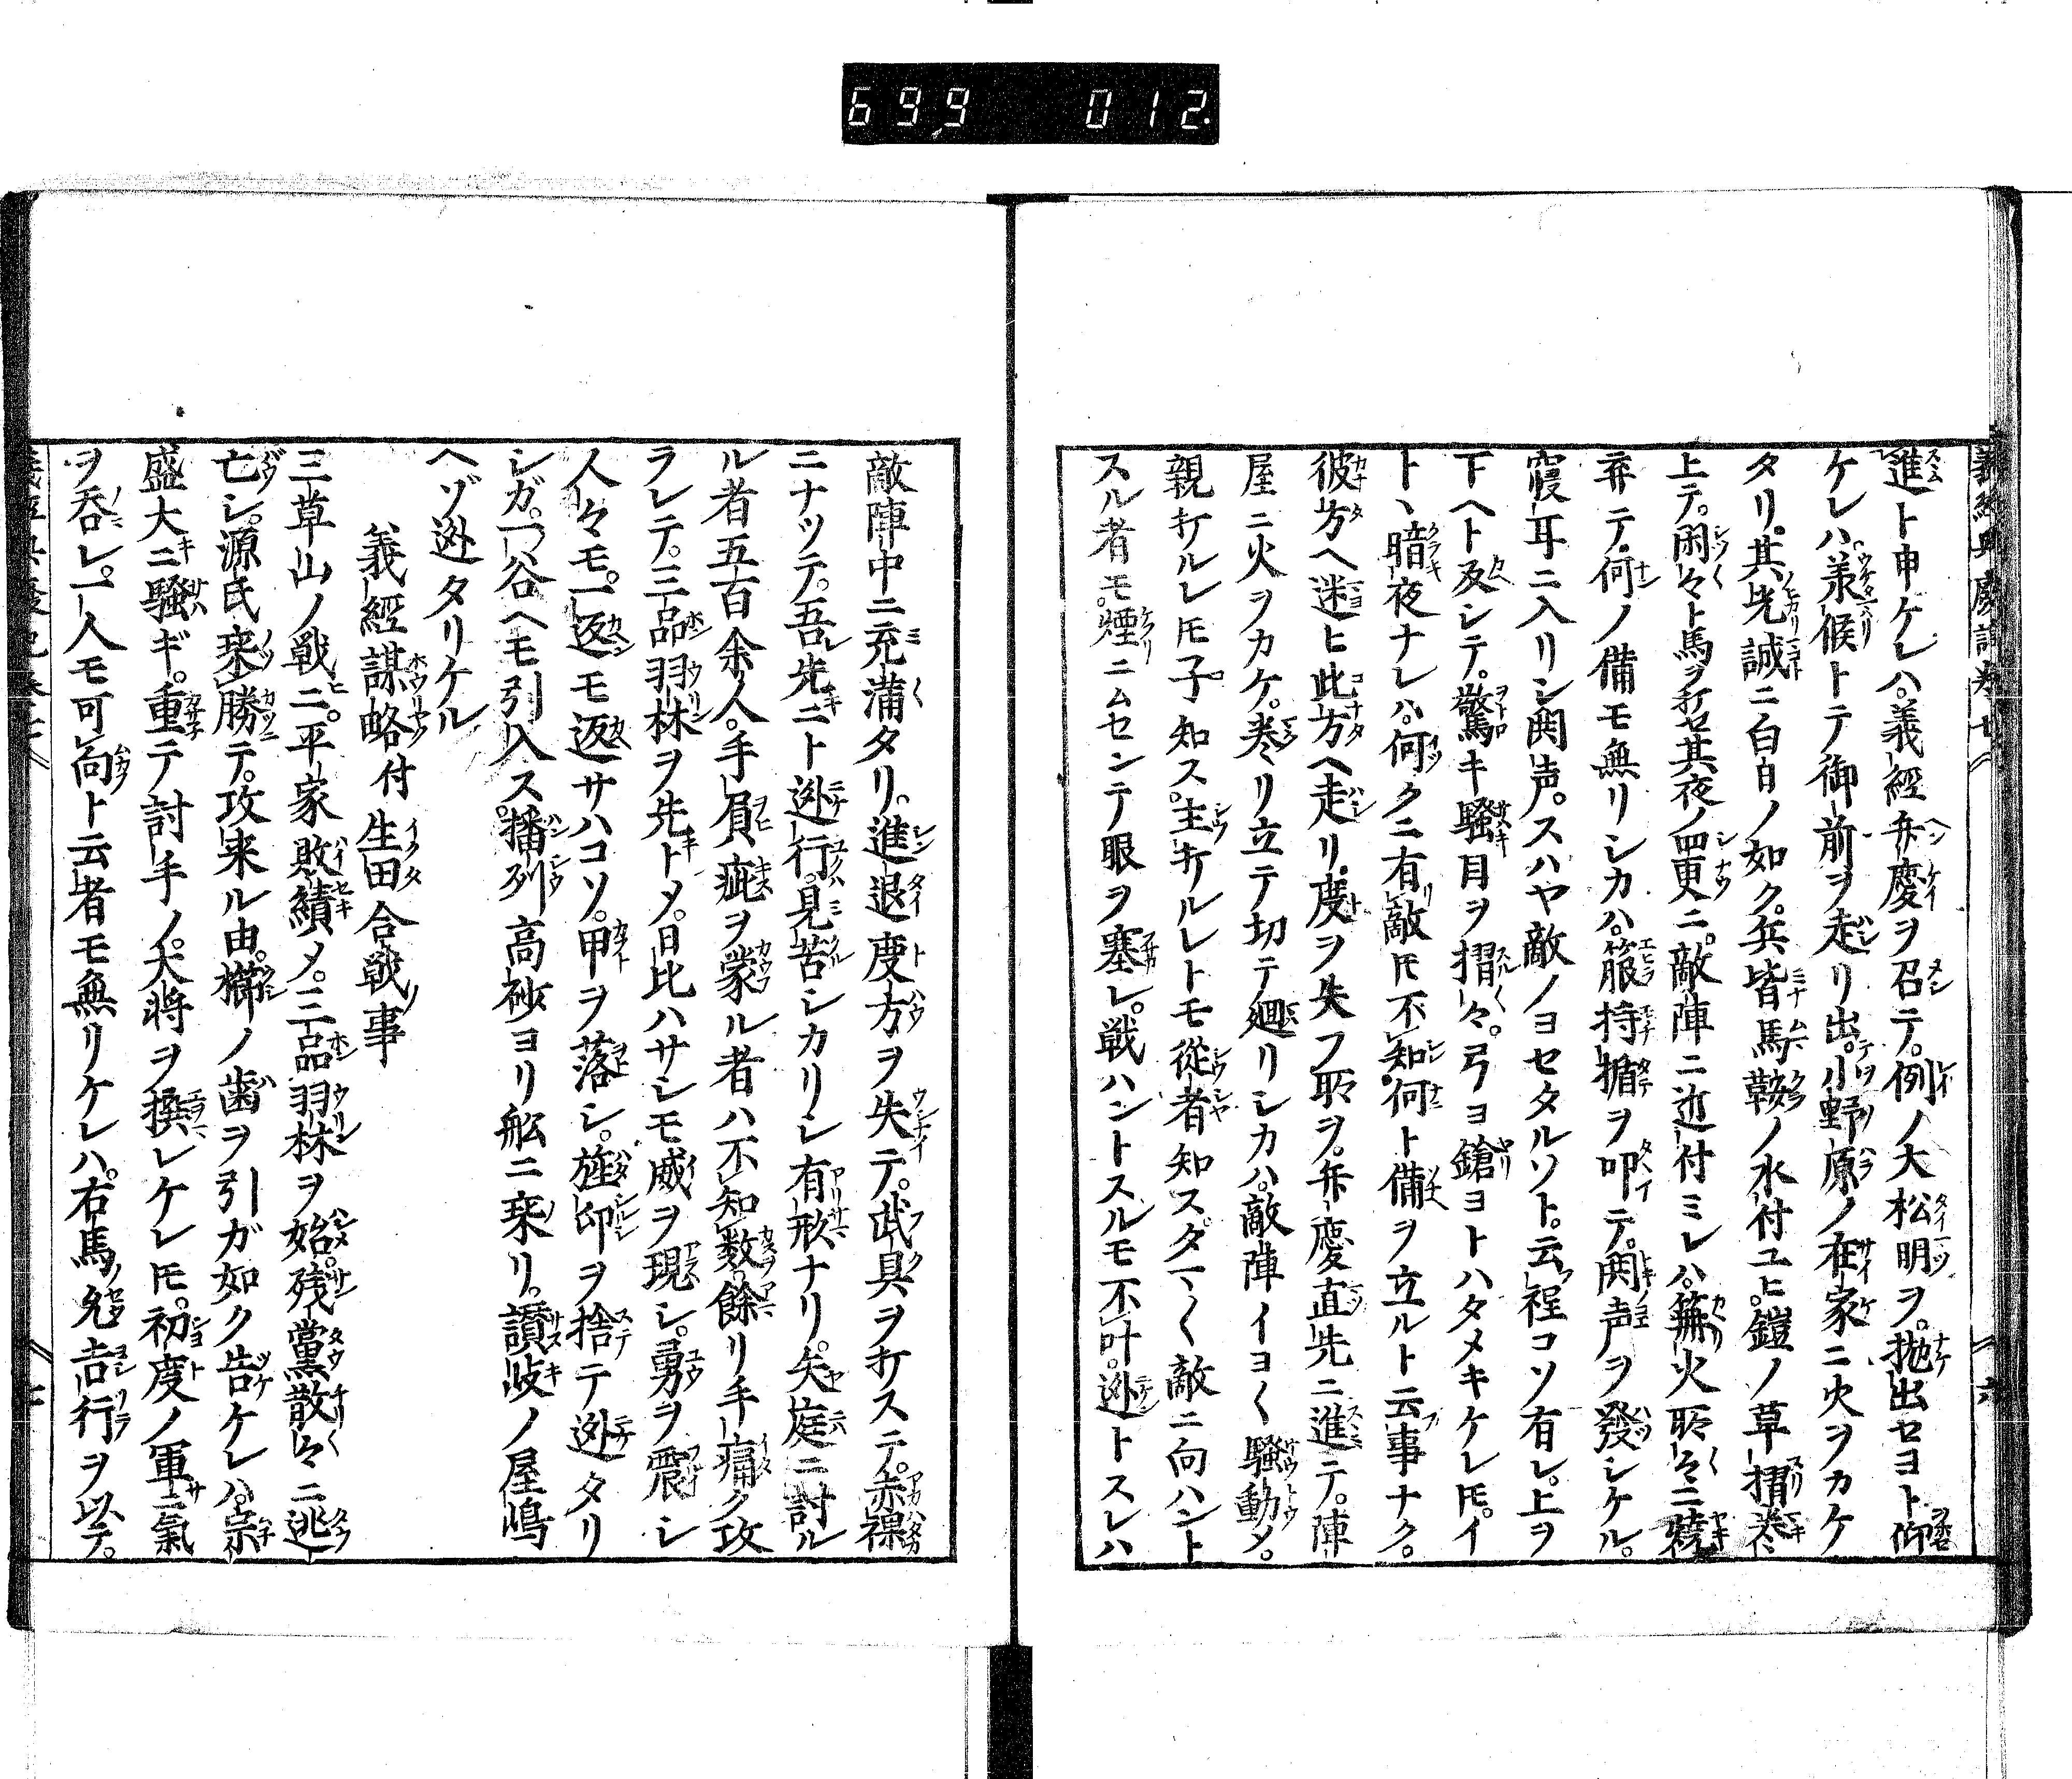 699 012
進ト申ケレハ。義經弁慶ヲ召テ。例ノ大松明ヲ。抛出セヨト仰
ケレハ。羕候トテ御前ヲ走リ出。小野原ノ在家ニ火ヲカケ
タリ。其光誠ニ白日ノ如ク。兵皆馬鞍ノ水付ユヒ。鎧ノ草摺巻
上テ。閑々ト馬ヲ打セ其夜ノ四更ニ。敵陣ニ近付ミレハ。篝火所々ニ燒
弃テ。何ノ備モ無リシカハ。箙持楯ヲ叩テ。鬨声ヲ發シケル。
寢耳ニ入リシ鬨声。スハヤ敵ノヨセタルソト。云程コソ有レ。上ヲ
下ヘト及シテ。驚キ騒目ヲ摺々。弓ヨ鎗ヨトハタメキケレ𪜈。イ
トヽ暗夜ナレハ。何クニ有敵𪜈不知。何ト備ヲ立ルト云事ナク。
彼方ヘ迷ヒ此方ヘ走リ。度ヲ失フ所ヲ。弁慶直先ニ進テ。陣
屋ニ火ヲカケ。巻リ立テ切テ廻リシカハ。敵陣イヨ〱騒動メ。
親打ルレ𪜈子知ス。主打ルレトモ從者知ス。タマ〱敵ニ向ハント
スル者モ。煙ニムセンテ眼ヲ塞レ。戦ハントスルモ不叶。迯トスレハ
敵陣中ニ充満タリ。進退度方ヲ失テ。武具ヲ打ステ。赤裸
ニナツテ。吾先ニト迯行。見苦シカリシ有㒵ナリ。矢庭ニ討ル
ル者五百余人。手屓疵ヲ蒙ル者ハ不知数。餘リ手痛ク攻
ラレテ。三品羽林ヲ先トメ。日比ハサシモ威ヲ現シ。勇ヲ震シ
人々モ。一返モ返サハコソ。甲ヲ落シ。旌印ヲ捨テ迯タリ
シガ。一ノ谷ヘモ引入ス。播州高砂ヨリ舩ニ乗リ。讃岐ノ屋嶋
ヘゾ迯タリケル
義經謀略付生田合戦事
三草山ノ戦ニ。平家敗績メ。三品羽林ヲ始。残黨散々ニ逃
亡シ。源氏乗勝テ。攻来ル由。櫛ノ歯ヲ引ガ如ク告ケレハ。宗
盛大ニ騒ギ。重テ討手ノ。大将ヲ撰レケレ𪜈。初度ノ軍ニ氣
ヲ呑レ。一人モ可向ト云者モ無リケレハ。右馬允吉行ヲ以テ。